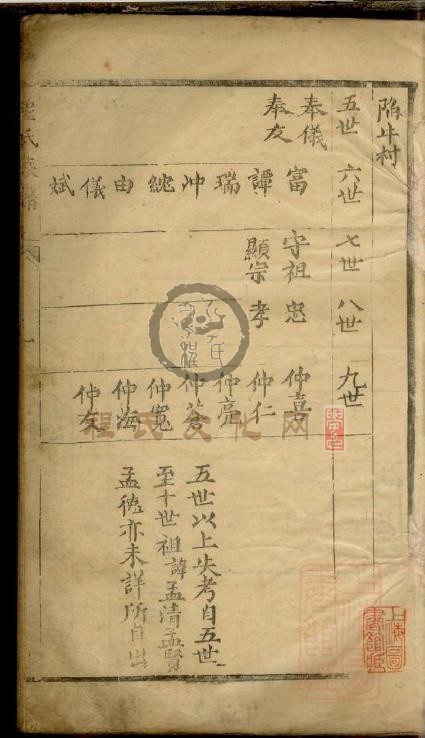 陷斗村
五世 六世 七世 八世 九世
奉儀
奉友
富 譚 瑞 冲 統 由 儀 斌
守祖 顯宗
忠 孝
仲喜 仲仁 仲亮 仲蒼 仲寬 仲海 仲友
五世以上失考自五世
至十世祖諱孟清孟賢
孟德亦未詳所自出
程氏文化网
上海圖書館藏